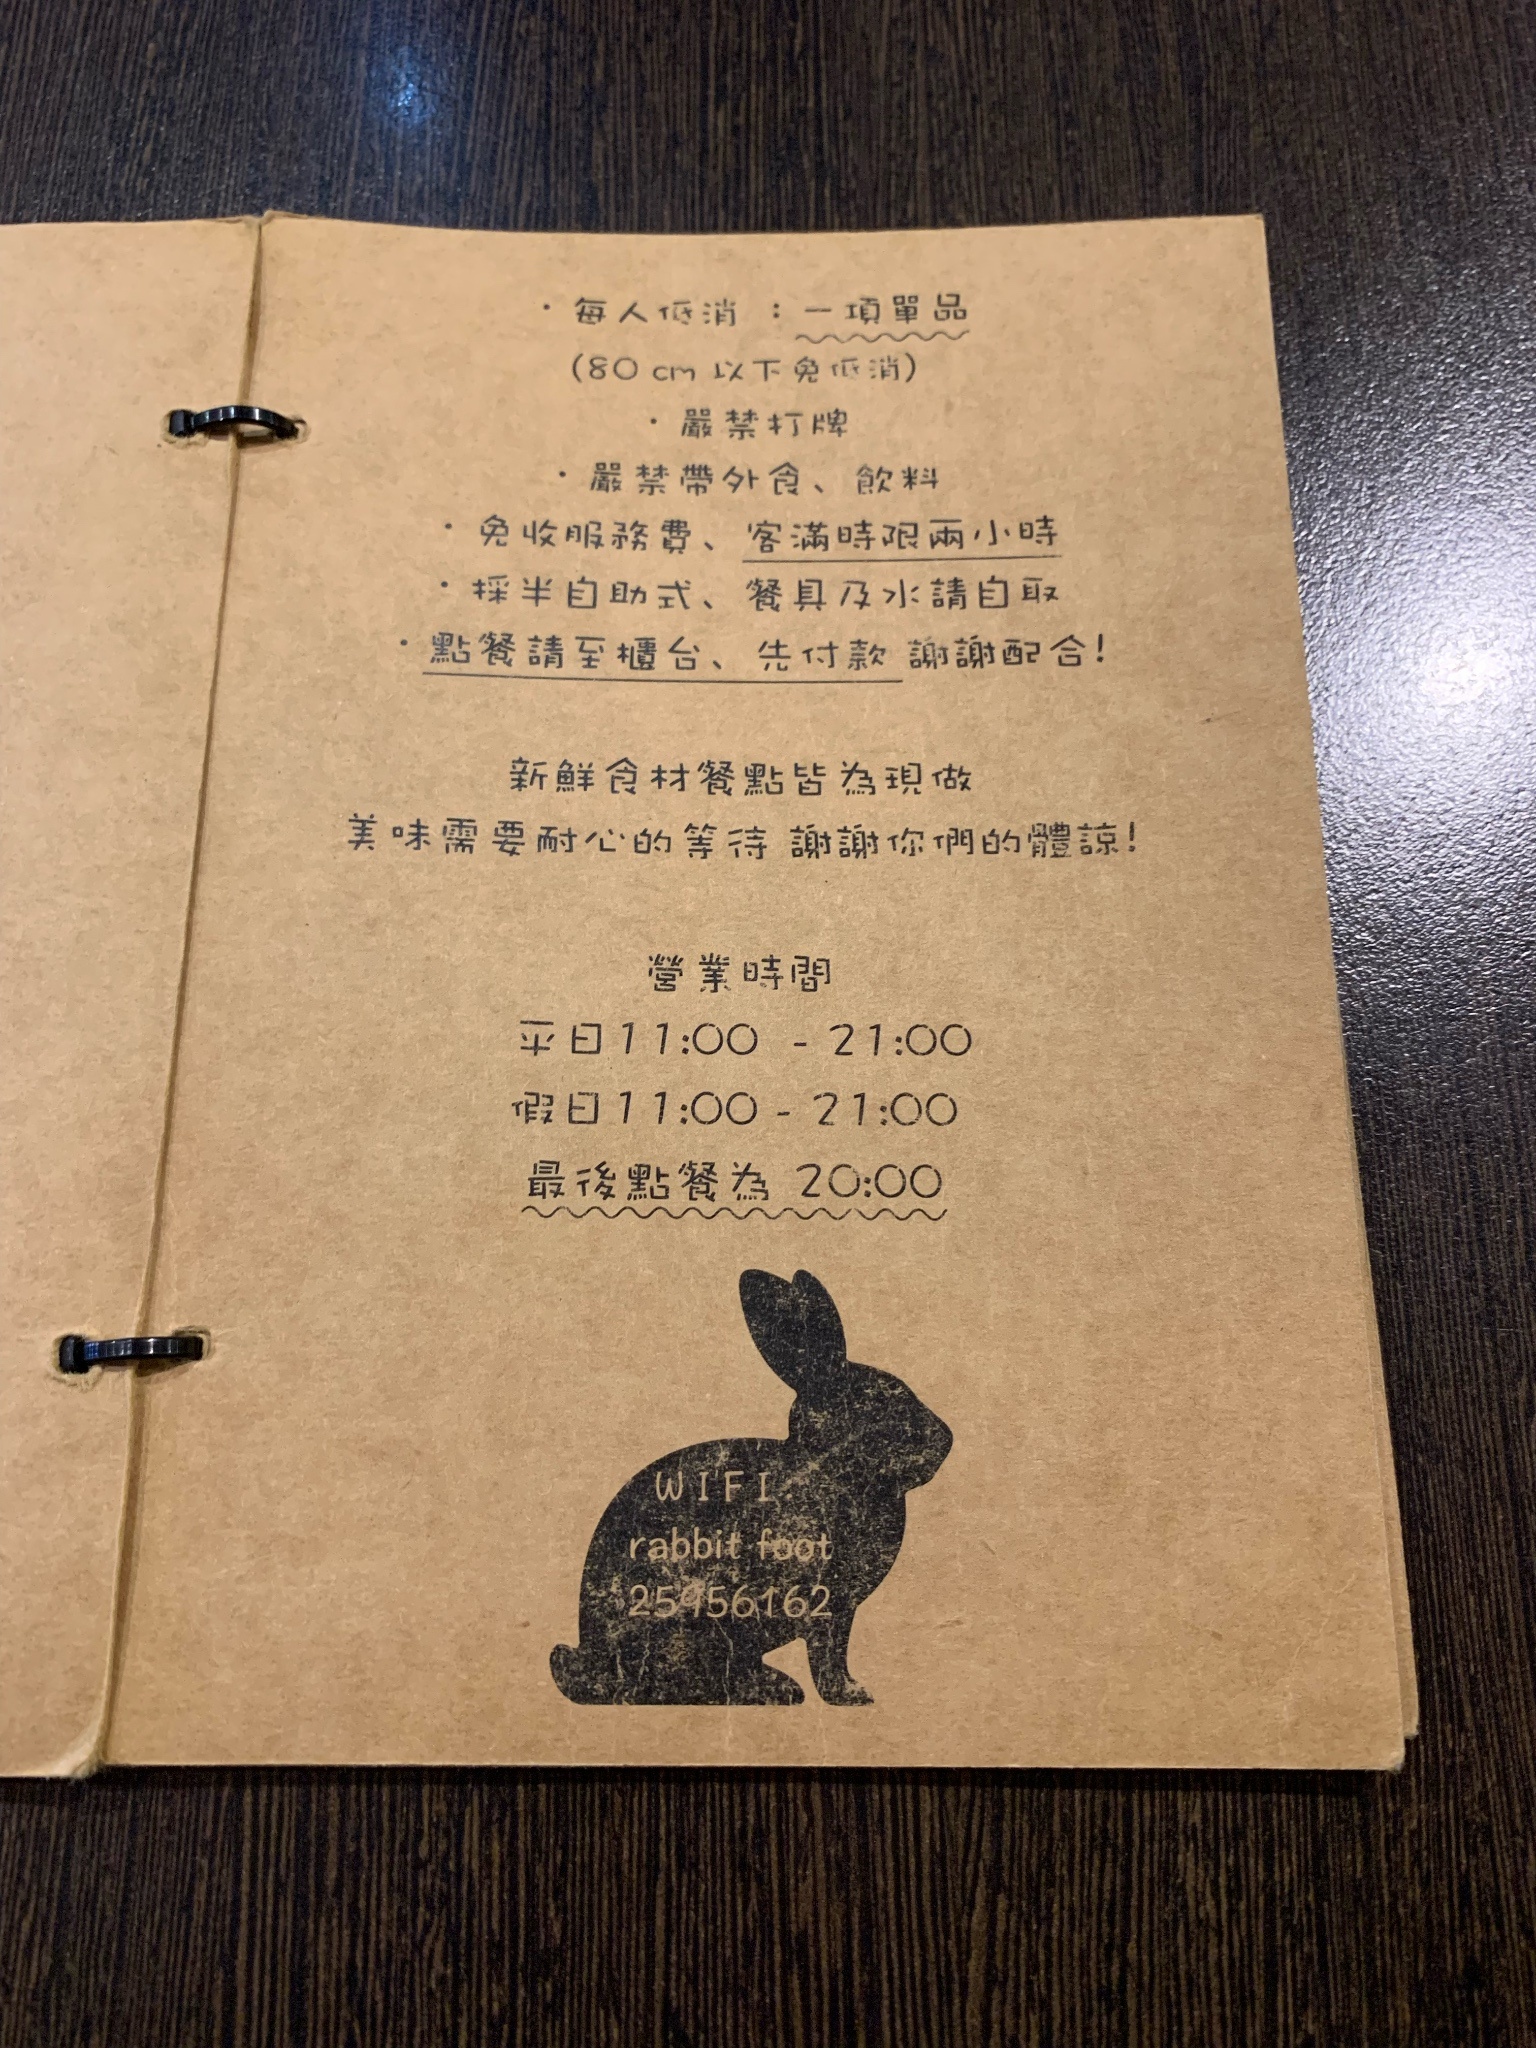 ・每人低消 ：一項單品
(80 cm 以下免低消)
・嚴禁打牌
・嚴禁帶外食、飲料
・免收服務費、客滿時限兩小時
・採半自助式、餐具及水請自取
・點餐請至櫃台、先付款 謝謝配合!
新鮮食材餐點皆為現做
美味需要耐心的等待 謝謝你們的體諒!
營業時間
平日11:00 - 21:00
假日11:00 - 21:00
最後點餐為 20:00
WIFI
rabbit foot
25956162